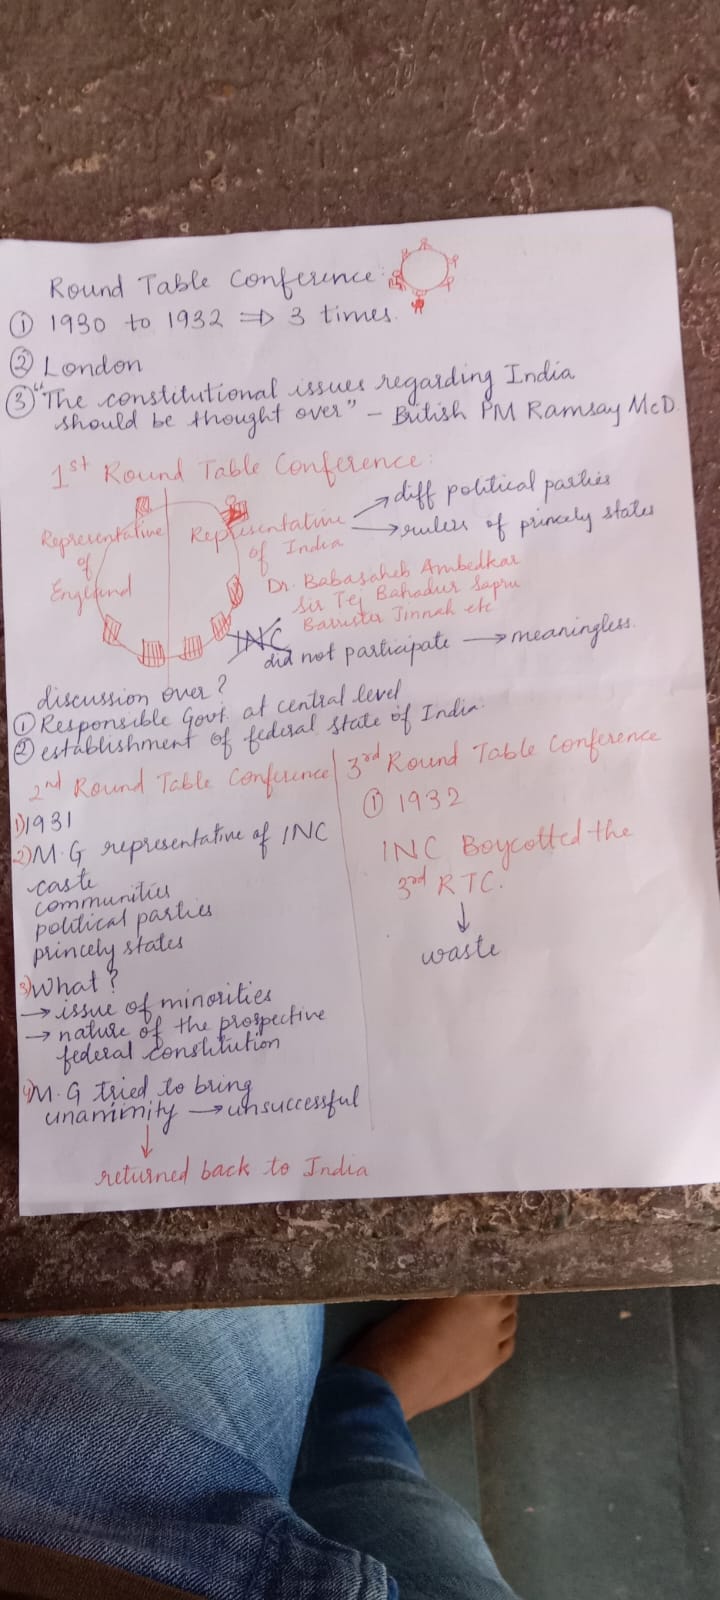 Round Table Conference:
① 1930 to 1932 ⇒ 3 times.
② London
③ "The constitutional issues regarding India
should be thought over" – British PM Ramsay McD.
1st Round Table Conference:
Representative of England
Representative of India
→ diff political parties
→ rulers of princely states
Dr. Babasaheb Ambedkar
Sir Tej Bahadur Sapru
Barrister Jinnah etc
INC
did not participate → meaningless.
discussion over?
① Responsible Govt. at central level
② establishment of federal state of India.
2nd Round Table Conference
1) 1931
2) M.G representative of INC
caste
communities
political parties
princely states
3) What?
→ issue of minorities
→ nature of the prospective
federal constitution
4) M.G tried to bring
unanimity → unsuccessful
↓
returned back to India
3rd Round Table Conference
① 1932
INC Boycotted the
3rd RTC.
↓
waste